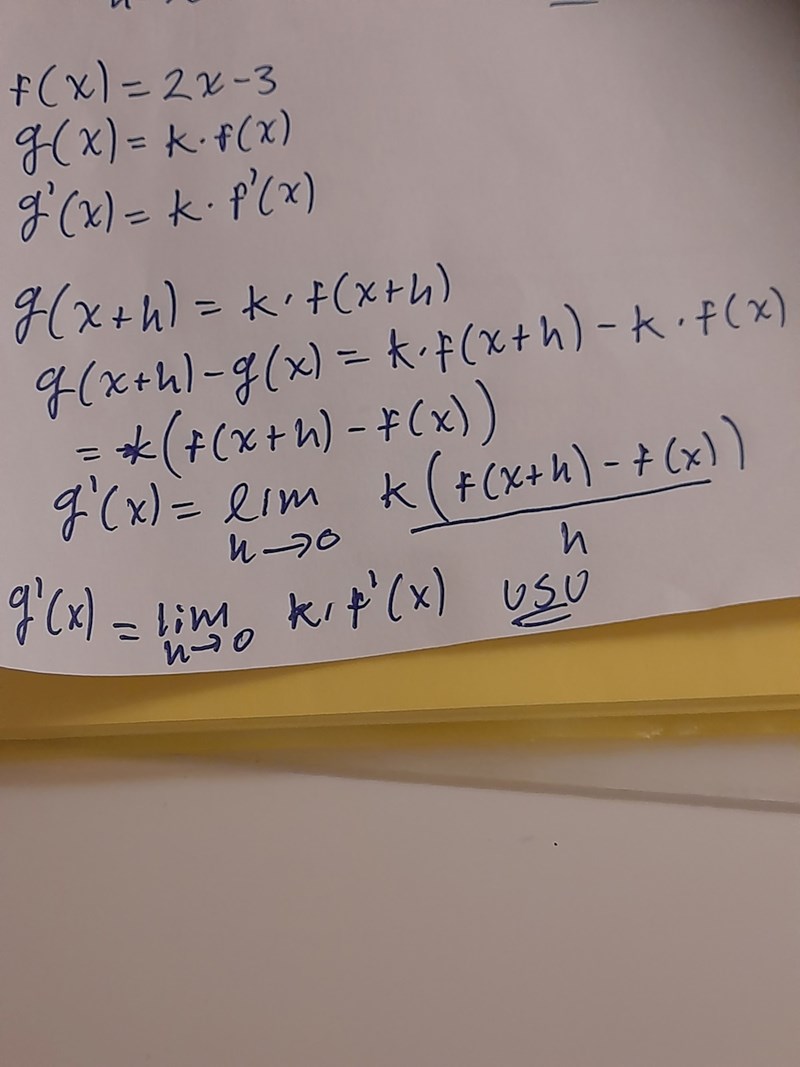 f(x) = 2x-3
g(x) = k·f(x)
g'(x) = k·f'(x)
g(x+h) = k·f(x+h)
g(x+h)-g(x) = k·f(x+h) - k·f(x)
= k(f(x+h) - f(x))
g'(x) = lim k(f(x+h) - f(x))
h→0 h
g'(x) = lim k·f'(x) VSV
h→0